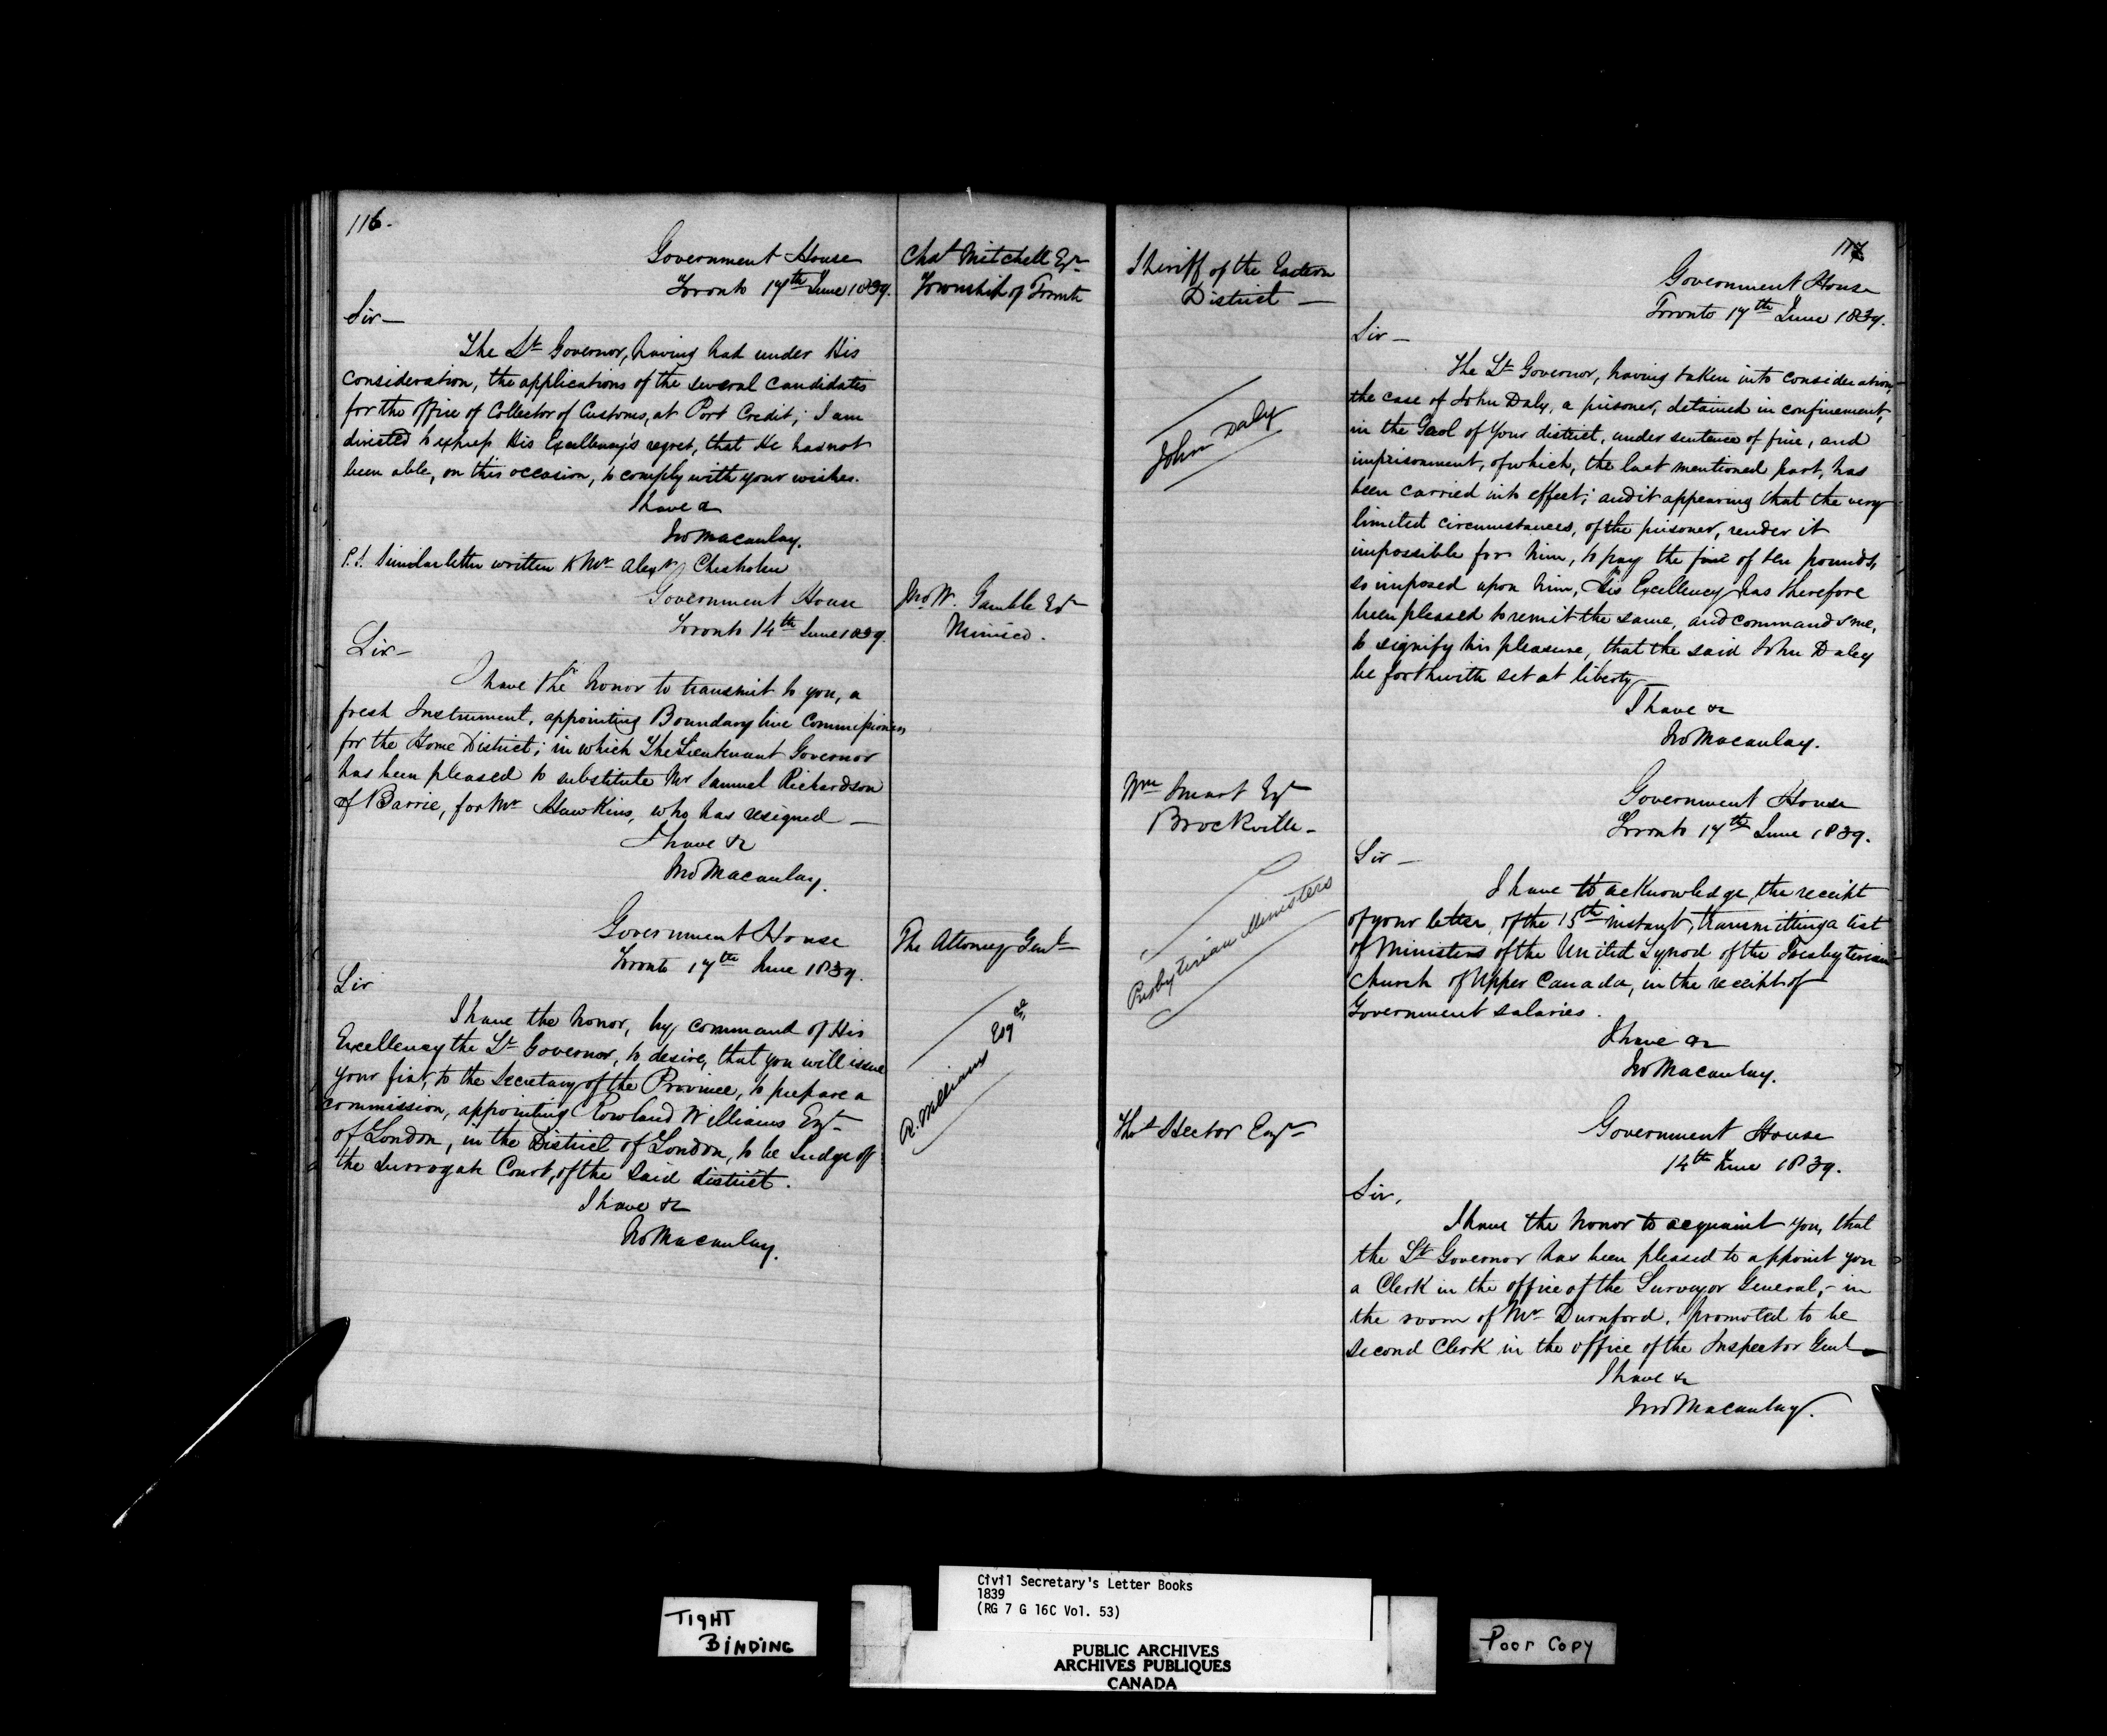 116.
Government House
Toronto 17th June 1839.
Chas Mitchell Esqr
Township of Toronto
Sir—
The Lt Governor, having had under His
consideration, the applications of the several candidates
for the office of Collector of Customs, at Port Credit; I am
directed to express His Excellency's regret, that He has not
been able, on this occasion, to comply with your wishes.
I have &
Jno Macaulay.
P.S. Similar letter written to Mr Alexr Chisholm
Government House
Toronto 14th June 1839.
Jno W. Gamble Esqr
Mimico.
Sir—
I have the honor to transmit to you, a
fresh Instrument, appointing Boundary line Commissioners
for the Home District; in which The Lieutenant Governor
has been pleased to substitute Mr Samuel Richardson
of Barrie, for Mr Hawkins, who has resigned —
I have &c
Jno Macaulay.
Government House
Toronto 17th June 1839.
The Attorney Genl
Sir
I have the honor, by command of His
Excellency the Lt Governor, to desire, that you will issue
your fiat, to the Secretary of the Province, to prepare a
commission, appointing Rowland Williams Esqr
of London, in the District of London, to be Judge of
the Surrogate Court, of the said district.
R. Williams Esqre
I have &c
Jno Macaulay.
117
Sheriff of the Eastern
District —
Government House
Toronto 17th June 1839.
Sir—
The Lt Governor, having taken into consideration,
the case of John Daly, a prisoner, detained in confinement,
in the Gaol of Your district, under sentence of fine, and
imprisonment, of which, the last mentioned part, has
been carried into effect; and it appearing that the very
limited circumstances, of the prisoner, render it
impossible for him, to pay the fine of ten pounds,
so imposed upon him, His Excellency has therefore
been pleased to remit the same, and commands me,
to signify his pleasure, that the said John Daley
be forthwith set at liberty
John Daly
I have &c
Jno Macaulay.
Wm Smart Esqr
Brockville—
Government House
Toronto 17th June 1839.
Sir—
I have to acknowledge, the receipt
of your letter, of the 15th instant, transmitting a list
of Ministers of the United Synod of the Presbyterian
Church of Upper Canada, in the receipt of
Government salaries.
Presbyterian Ministers
I have &c
Jno Macaulay.
Thos Hector Esqr
Government House
14th June 1839.
Sir,
I have the honor to acquaint you, that
the Lt Governor has been pleased to appoint you
a Clerk in the office of the Surveyor General,- in
the room of Mr Durnford, promoted to be
second Clerk in the office of the Inspector Genl—
I have &
Jno Macaulay.
TIGHT
BINDING
Civil Secretary's Letter Books
1839
(RG 7 G 16C Vol. 53)
PUBLIC ARCHIVES
ARCHIVES PUBLIQUES
CANADA
Poor Copy